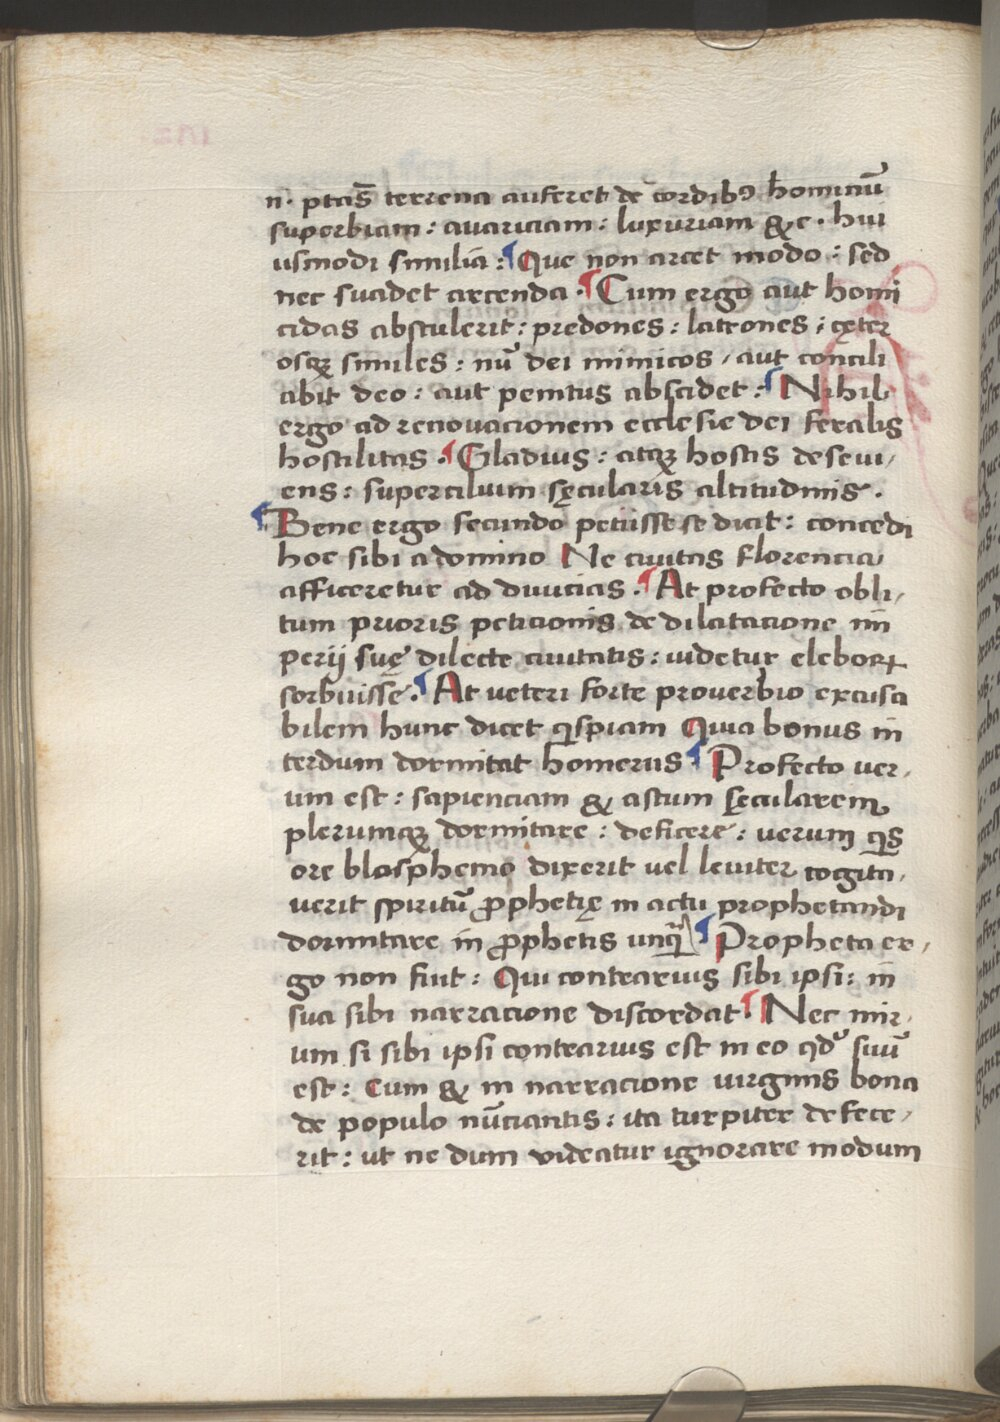 n. ptās terrena auferet de cordibꝰ hominū
superbiam : avariciam : luxuriam & c . hui
usmodi similia : ¶ Que non arcet modo : sed
nec suadet arcenda . ¶ Cum ergo aut homi
cidas abstulerit : predones : latrones : cęter
osqꝫ similes : nū dei inimicos / aut concili
abit deo : aut penitus abscidet : ¶ Nihil
ergo ad renovacionem ecclesie dei feralis
hostilitas . ¶ Gladius : atqꝫ hostis desevi /
ens : supercilium sęcularis altitudinis .
¶ Bene ergo secundo petiisse se dicit : concedi
hoc sibi a domino Ne civitas florencia
afficeretur ad divicias . ¶ At profecto obli /
tum prioris peticionis de dilatacione im
perij suę dilecte civitatis : videtur eleboꝝ
sorbuisse . ¶ At veteri forte proverbio excusa
bilem hunc dicet qispiam Quia bonus in
terdum dormitat homerus ¶ Profecto ver /
um est : sapienciam & astum sęcularem
plerumqꝫ dormitare : deficere : verum qis
ore blasphemo dixerit vel leviter cogita /
verit spiritū ꝓphetię in actu prophetandi
dormitare in ꝓphetis unqā ¶ Propheta er /
go non fuit : Qui contrarius sibi ipsi : in
sua sibi narracione discordat ¶ Nec mir /
um si sibi ipsi contrarius est in eo qd suū
est : Cum & in narracione virginis bona
de populo nūciantis : ita turpiter defece /
rit : ut ne dum videatur ignorare modum